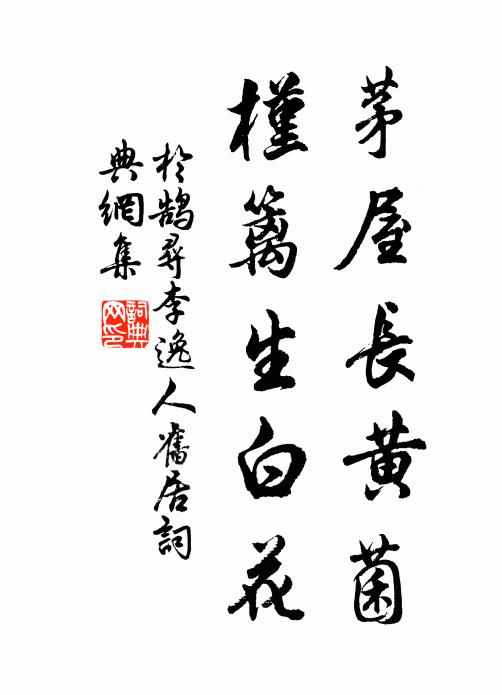 茅屋長黃菌
槿籬生白花
於鵠尋李逸人舊居詞
典網集
詞典網印